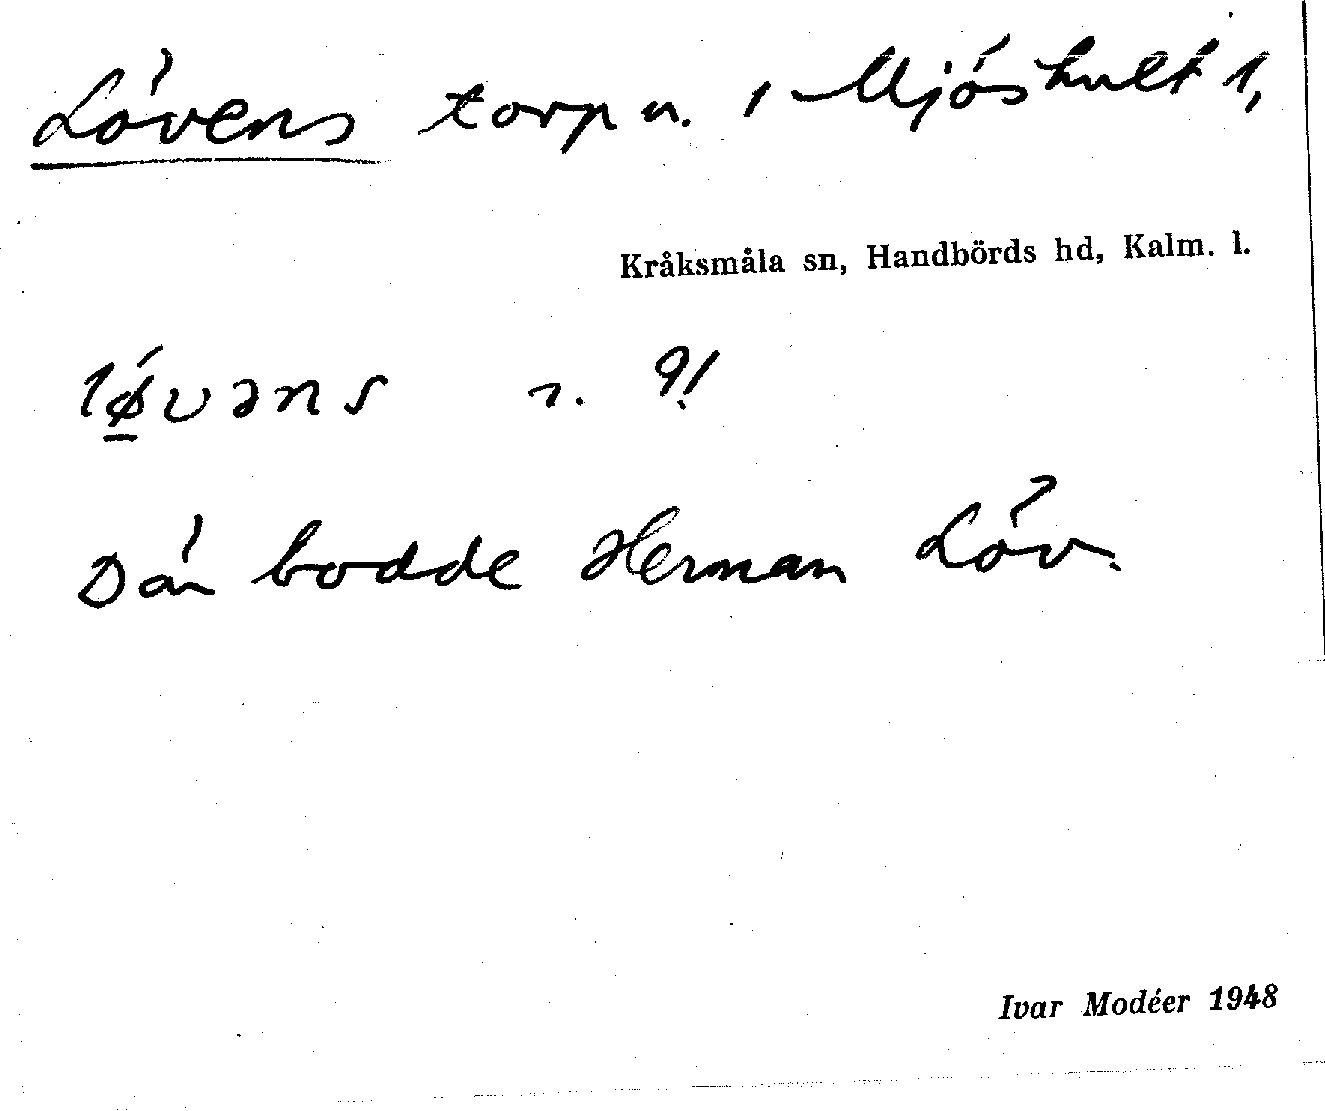 Lövens torp u. 1 Mjöshult 1,
Kråksmåla sn, Handbörds hd, Kalm. l.
lǿ̲vəns
Där bodde Herman Löv.
Ivar Modéer 1948